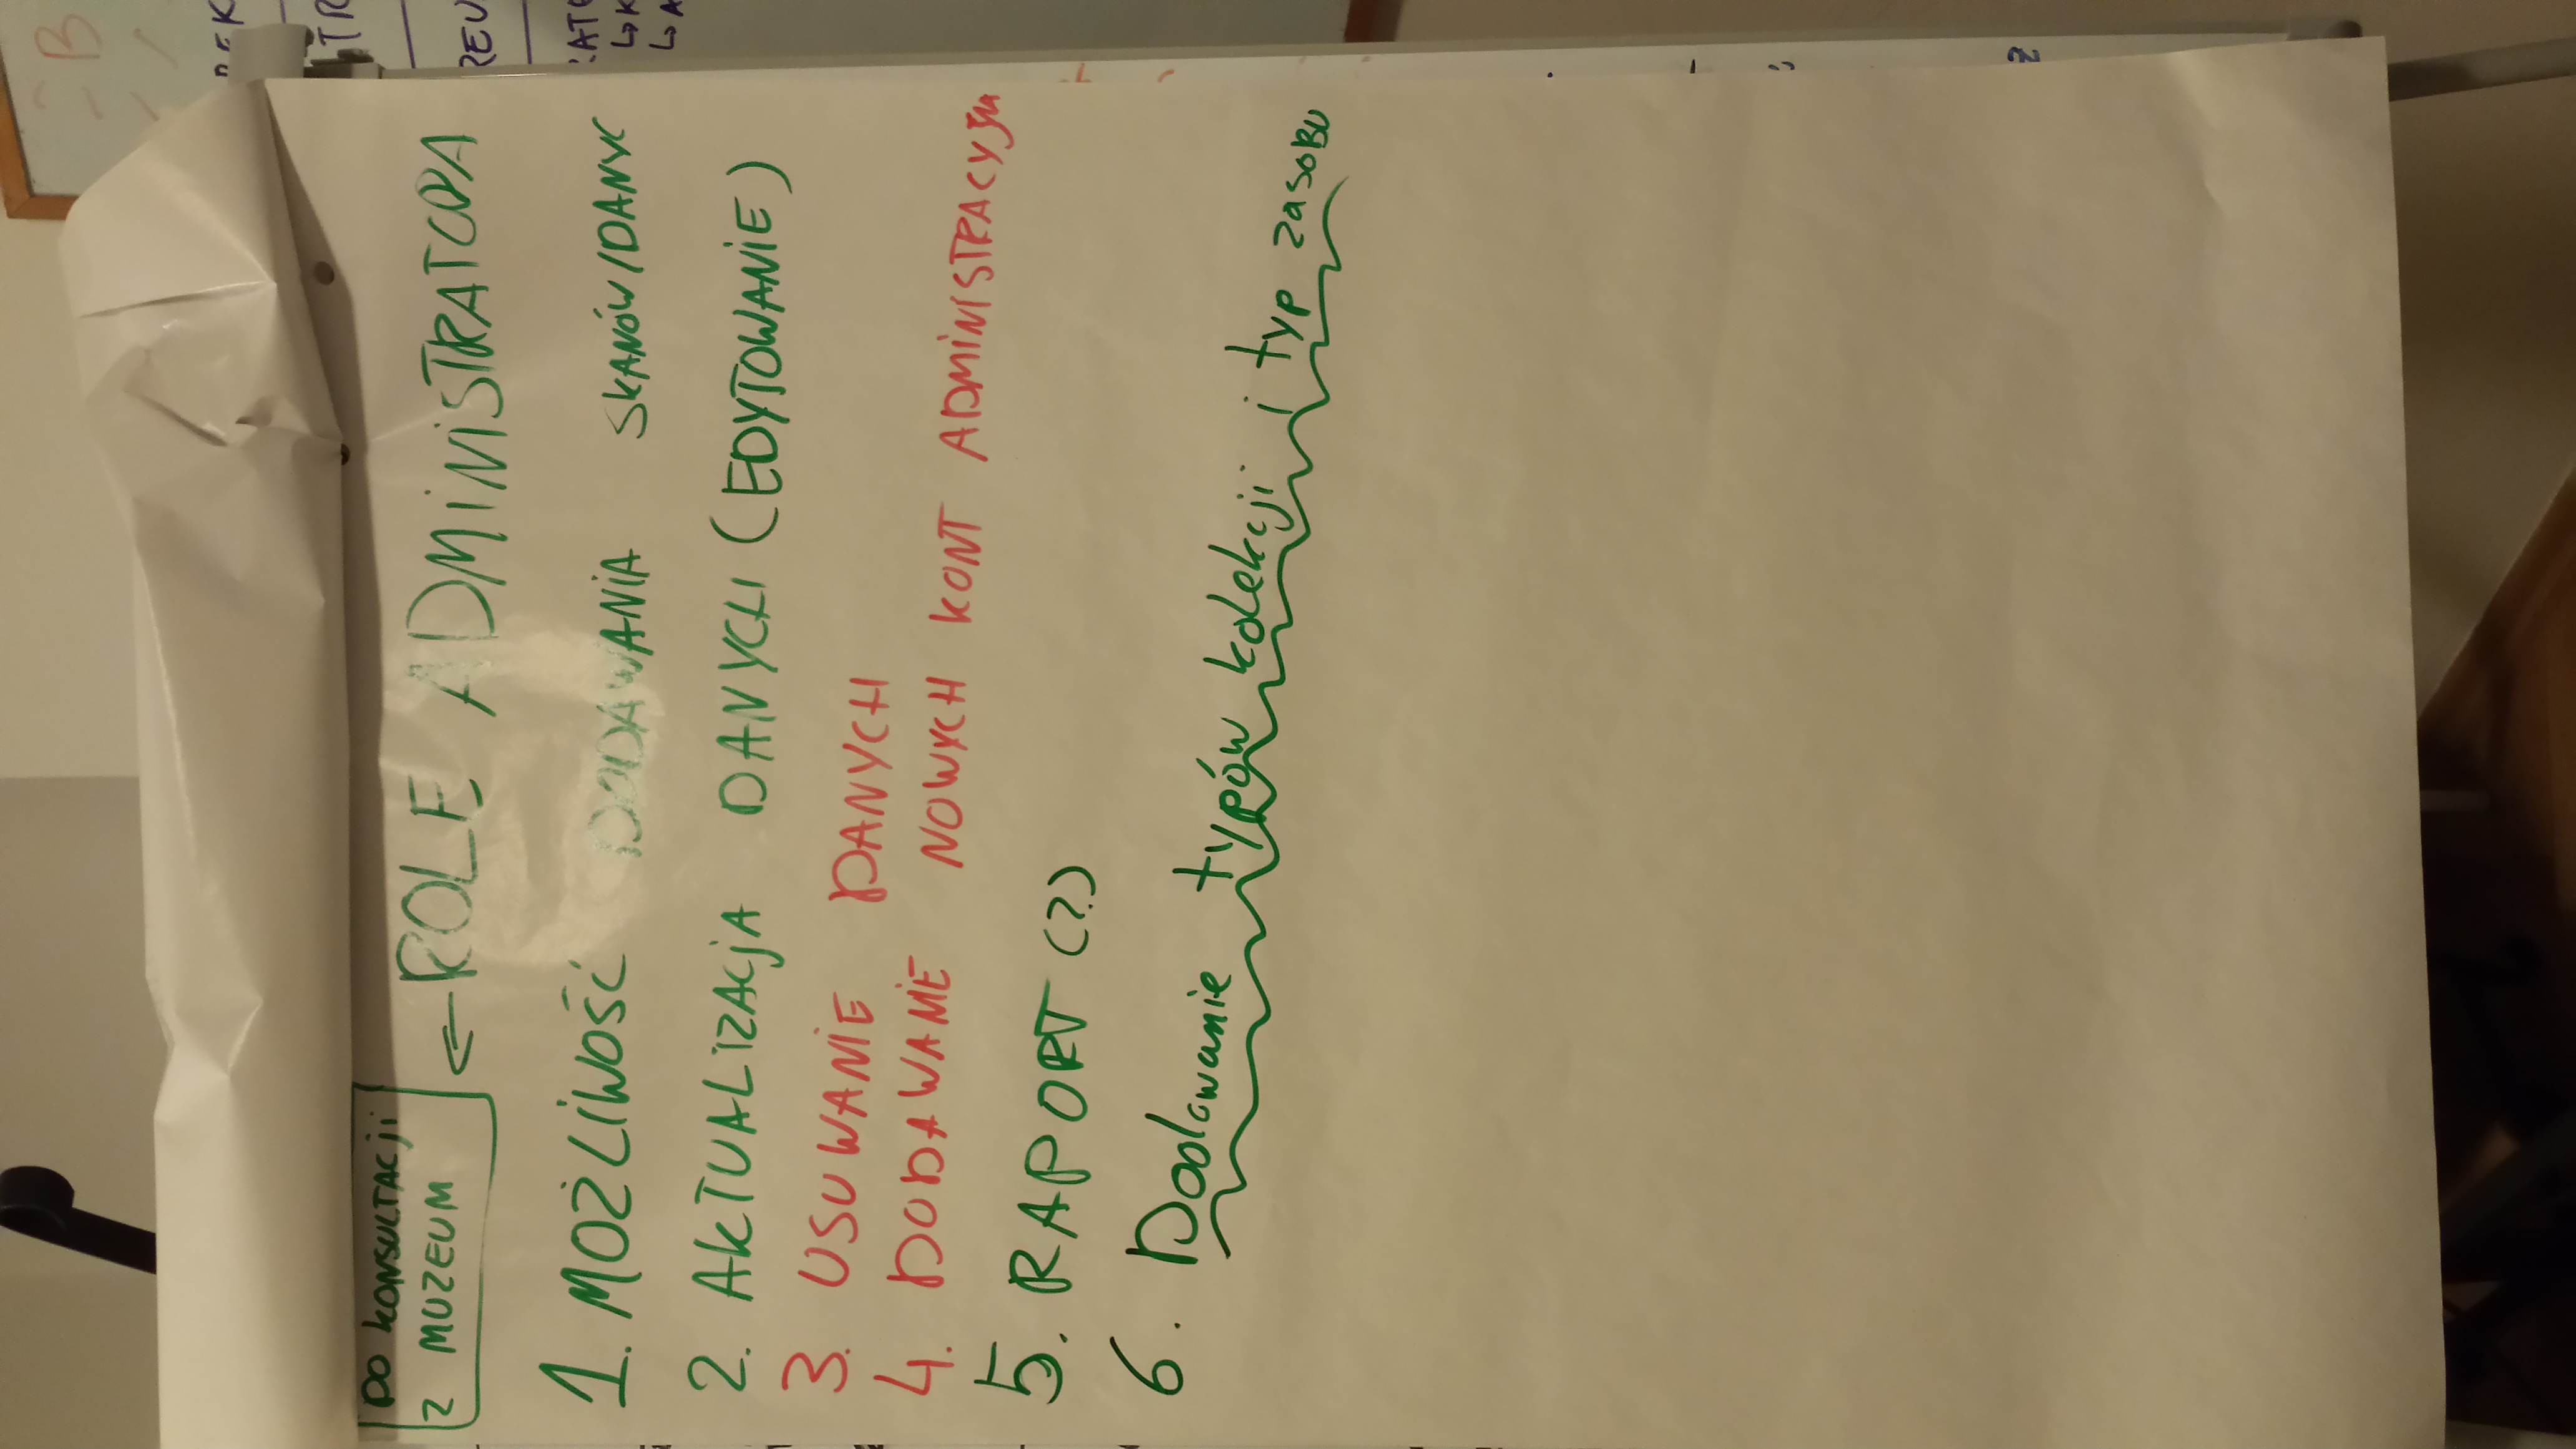 DO KONSULTACJI
Z MUZEUM
← ROLE ADMINISTRATORA
1. MOŻLIWOŚĆ DODAWANIA SKANÓW/DANYC
2. AKTUALIZACJA DANYCH (EDYTOWANIE)
3. USUWANIE DANYCH
4. DODAWANIE NOWYCH KONT ADMINISTRACYJN
5. RAPORT (?)
6. Dodawanie typów kolekcji i typ zasobu